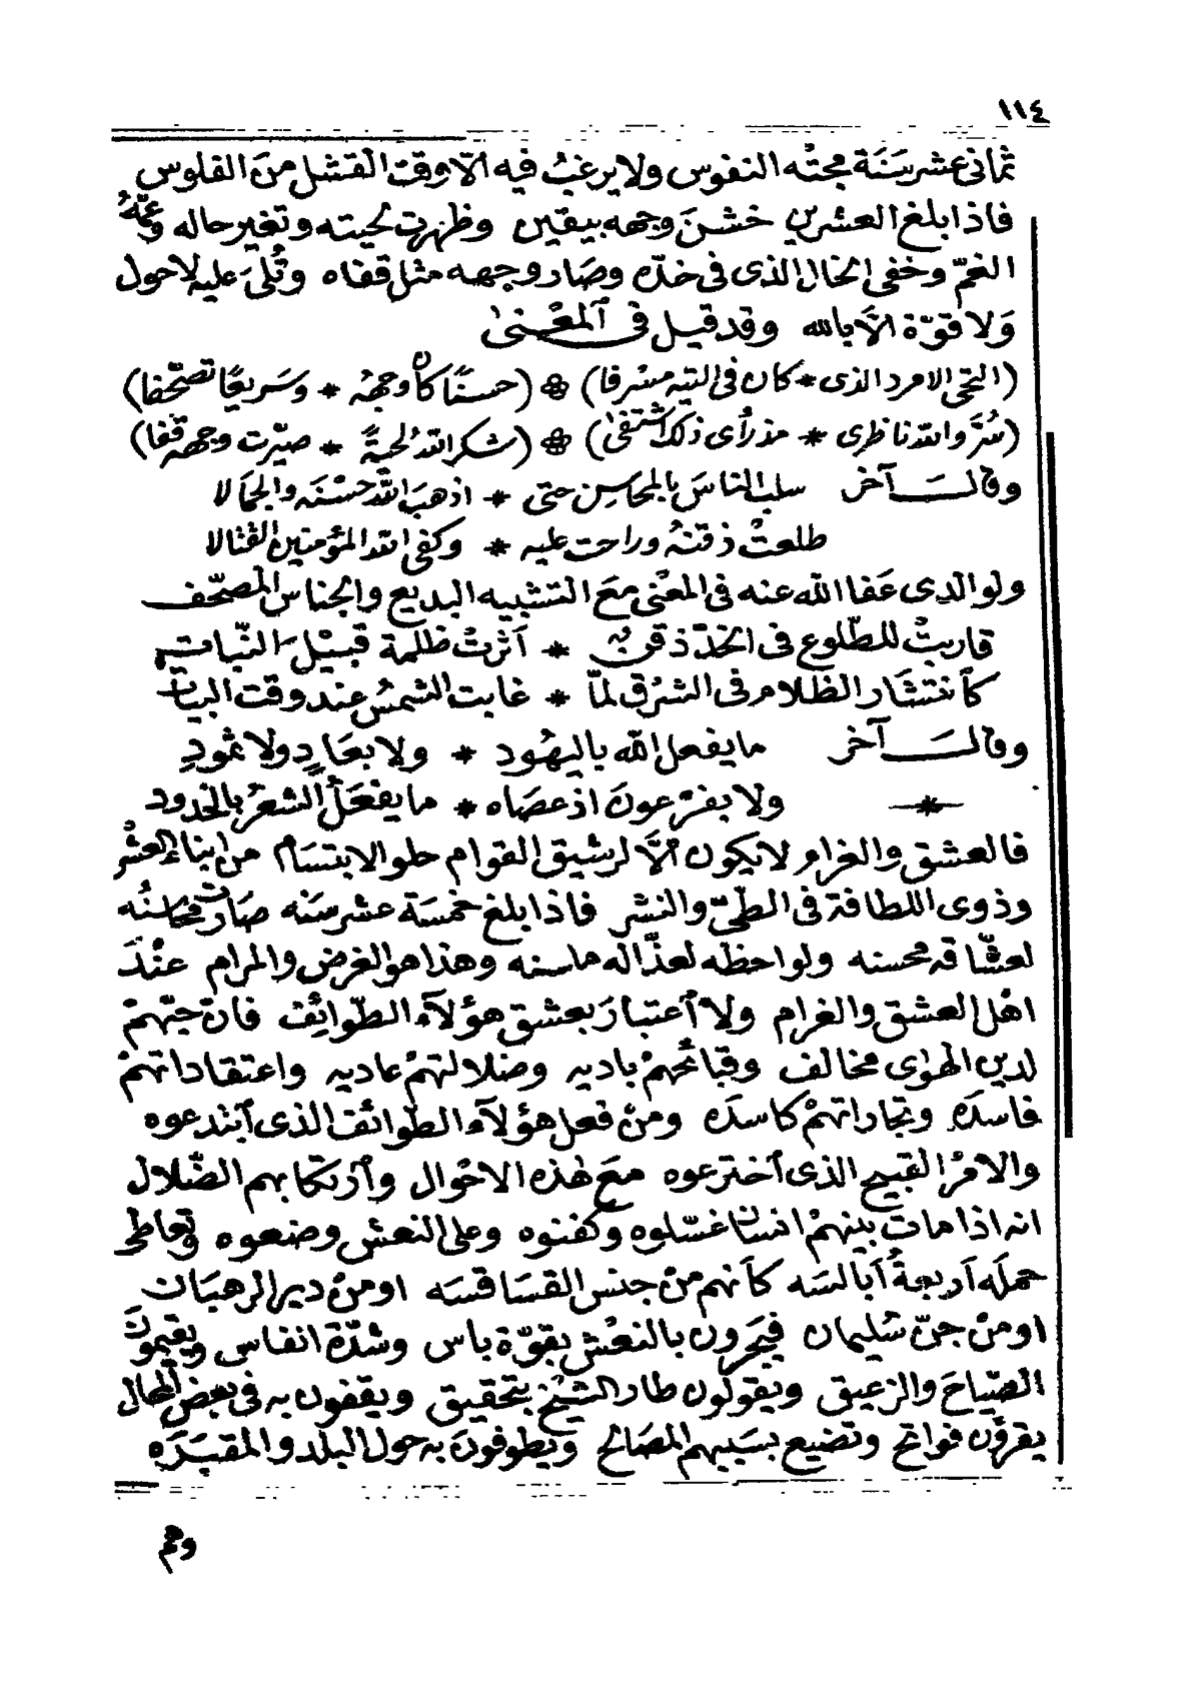 ١١٤
ثمانى عشر سَنَة مجتْه النفوس ولا يرغبُ فيه الاّ وقت القشل منَ الفلوس
فاذا بلغ العشرين خشنَ وجهه بيقين وظهرت لحيته وتغير حاله وعمَّهُ
الغمّ وخفى الخال الذى فى خدّه وصَار وجهه مثل قفاه وتُلىَ عليه لا حول
وَلا قوّة الاَّ بالله وقد قيل فى ٱلمعْنىٰ
(التحى الامرد الذى * كان فى التيه مسْرفا) (حسنًا كان وجههُ * وسَريعًا تصحّفا)
(سُرَّ واللّه ناظرى * مذ رأى ذلك اشتفىٰ) (شكر اللّه لحيةً * صيّرت وجهه قفا)
وقالـــَ آخر سلب الناسَ بالمحاسِن حتى * اذهبَ اللّه حسْنَه والجمَالا
طلعتْ ذقنهُ وراحت عليه * وكفى اللّه المؤمنين القتالا
ولوالدى عَفا اللّه عنه فى المعْنى معَ التشبيه البديع والجناس المصحّف
قاربتْ للطّلوع فى الخدّ ذقن * أثرتْ ظلمة قبيْل النّبات
كأنتشار الظلام فى الشرْق لمّا * غابت الشمسُ عند وقت البيات
وقالـــَ آخر ما يفعل اللّه باليهُود * ولا بعَادٍ ولا ثمودٍ
* ولا بفرْعونَ اذ عصَاه * ما يفعَلُ الشعرُ بالخدود
فالعشق والغرام لا يكون الاَّ لرشيق القوام حلو الابتسَام من ابناء العشْر
وذوى اللطافة فى الطىّ والنشر فاذا بلغ خمسَة عشر سَنه صَارت محاسنُه
لعشّاقه محسنه ولواحظه لعذّاله ماسنه وهذا هو الغرض والمرام عنْدَ
اهْل العشق والغرام ولا ٱعتبارَ بعشق هؤلآء الطّوائِف فانّ حبّهمْ
لدين الهوٰى مخالف وقبائحُهمْ باديه وضلالتهمْ عاديه واعتقاداتهمْ
فاسدَه وتجاراتهمْ كاسدَه ومنْ فعل هؤلآء الطّوائف الذى ٱبتدعوه
والامْر القبيح الذى ٱخترعوه معَ هٰذه الاحْوال وٱرْتكابهم الضّلال
انه اذا ماتَ بينهمْ انسان غسّلوه وكفنوه وعلى النعش وضعوه وتعاطى
حمله أربعةُ أبالسَه كأنهم منْ جنس القسَاقسَه اومنْ دير الرهبَان
اومنْ جنّ سُليمان فيَجرون بالنعْش بقوّة باس وشدّة انفاس ويقيمُونَ
الصّياحَ والزعيق ويقولون طار الشيْخ بتحقيق ويقفون به فى بعض المحال
يقرؤن فواتح وتضيع بسَببهم المصَالح ويطوفونَ به حول البلد والمقبَرَه
وهم